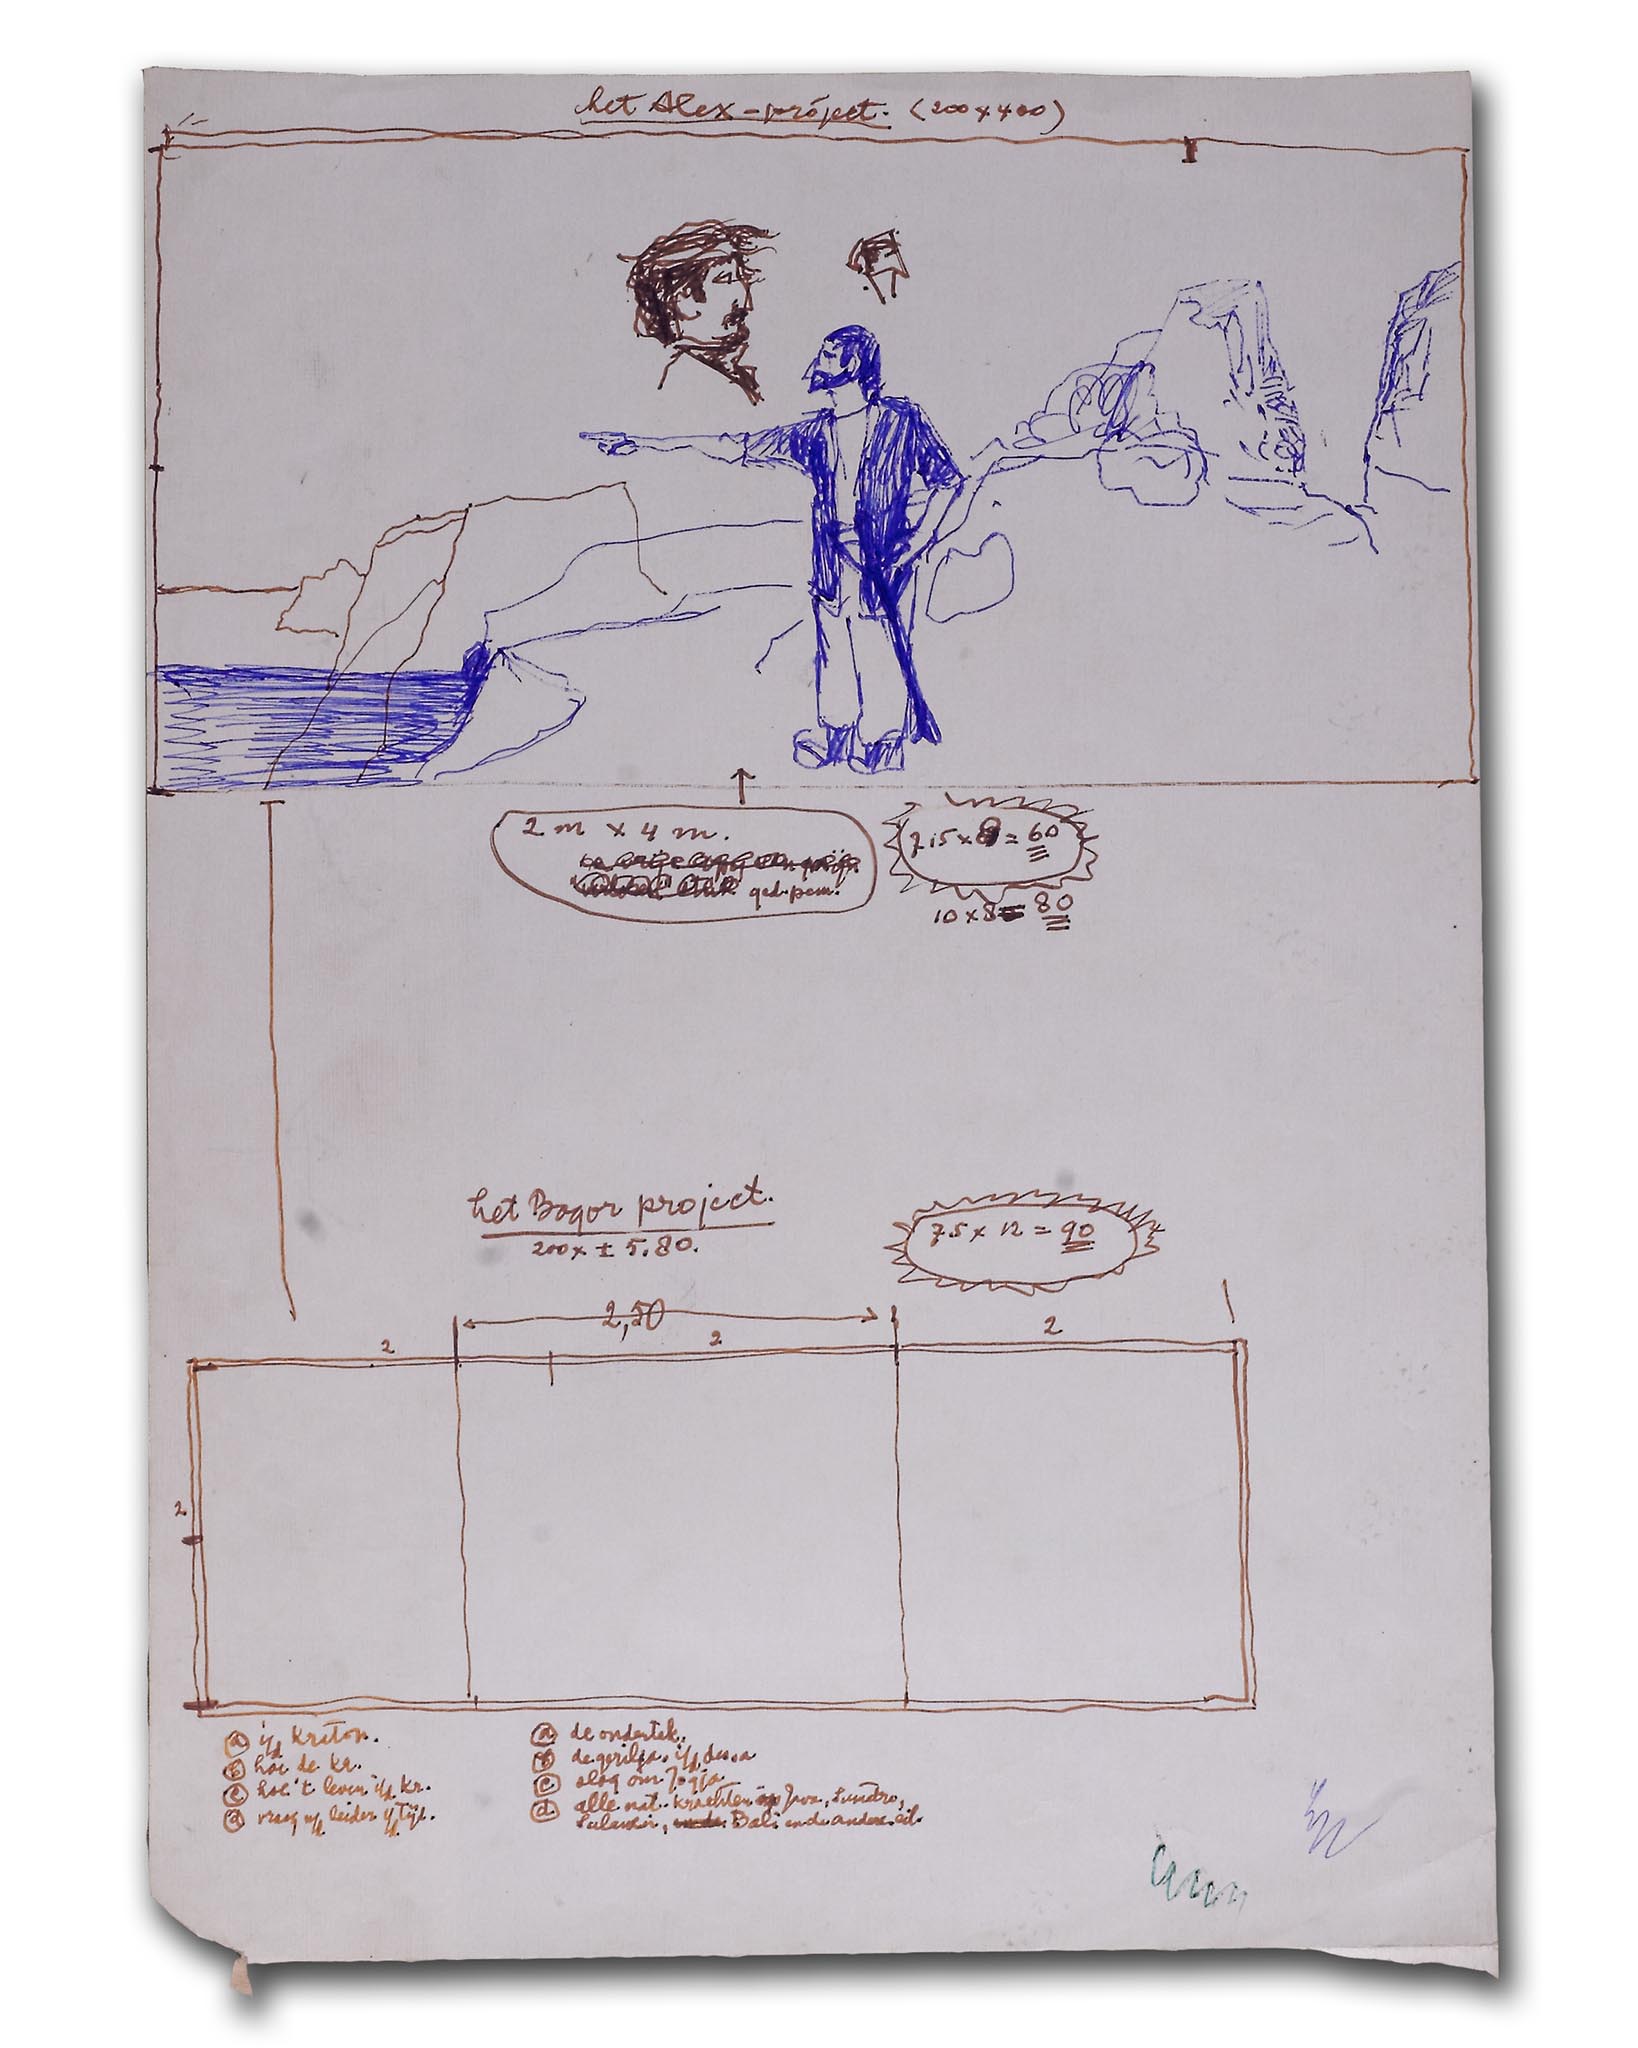 het Alex-project. (200 x 400)
2 m x 4 m.
ged. pem.
7.5 x 8 = 60
10 x 8 = 80
het Bogor project.
200 x ± 5.80.
7.5 x 12 = 90
2,50
2
2
2
2
a i/d kraton.
b hoe de kr.
c hoe 't leven i/d kr.
d leider
a de ondertek.
b de gerilja. i/d dessa
c slag om Jogja.
d alle nat. krachten op Java,
Bali en de andere eil.